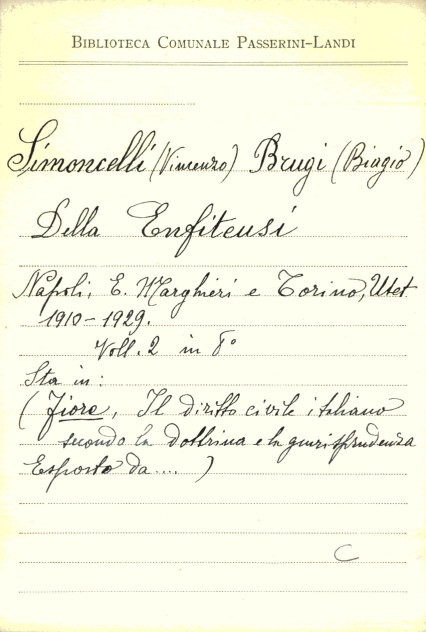 BIBLIOTECA COMUNALE PASSERINI-LANDI
Simoncelli (Vincenzo) Brugi (Biagio)
Della Enfiteusi
Napoli, E. Marghieri e Torino, Utet
1910-1929.
Voll. 2 in 8°
Sta in:
(Fiore, Il diritto civile italiano
secondo la dottrina e la giurisprudenza
Esposto da.... )
C